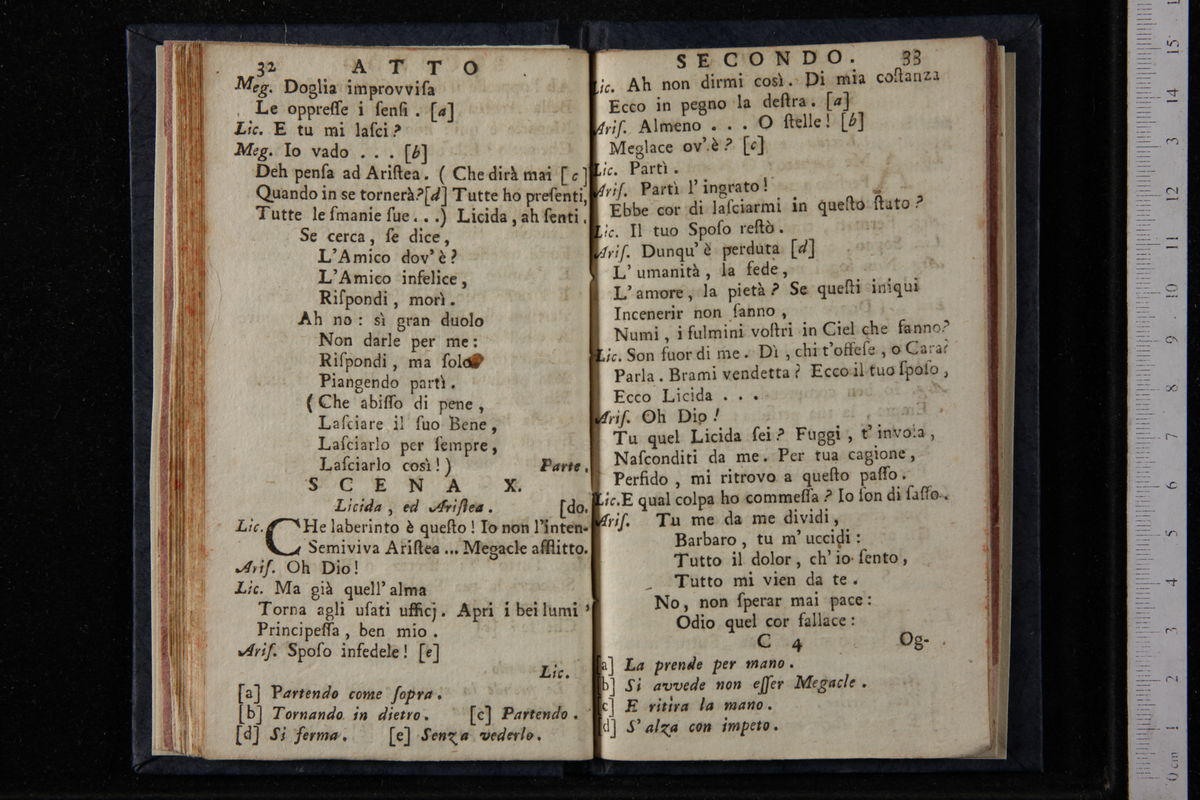 32 ATTO
Meg. Doglia improvviſa
Le oppreſſe i ſenſi. [a]
Lic. E tu mi laſci?
Meg. Io vado... [b]
Deh penſa ad Ariſtea. (Che dirà mai [c]
Quando in se tornerà?[d] Tutte ho preſenti,
Tutte le ſmanie ſue...) Licida, ah ſenti.
Se cerca, ſe dice,
L'Amico dov'è?
L'Amico infelice,
Riſpondi, morì.
Ah no: sì gran duolo
Non darle per me:
Riſpondi, ma ſolo
Piangendo partì.
(Che abiſſo di pene,
Laſciare il ſuo Bene,
Laſciarlo per ſempre,
Laſciarlo così!) Parte.
SCENA X.
Licida, ed Ariſtea. [do.
Lic. CHe laberinto è queſto! Io non l'inten-
Semiviva Ariſtea... Megacle afflitto.
Ariſ. Oh Dio!
Lic. Ma già quell'alma
Torna agli uſati ufficj. Apri i bei lumi
Principeſſa, ben mio.
Ariſ. Spoſo infedele! [e]
Lic.
[a] Partendo come ſopra.
[b] Tornando in dietro. [c] Partendo.
[d] Si ferma. [e] Senza vederlo.
SECONDO. 33
Lic. Ah non dirmi così. Di mia coſtanza
Ecco in pegno la deſtra. [a]
Ariſ. Almeno... O ſtelle! [b]
Meglace ov'è? [c]
Lic. Partì.
Ariſ. Partì l'ingrato!
Ebbe cor di laſciarmi in queſto ſtato?
Lic. Il tuo Spoſo reſtò.
Ariſ. Dunqu'è perduta [d]
L'umanità, la fede,
L'amore, la pietà? Se queſti iniqui
Incenerir non ſanno,
Numi, i fulmini voſtri in Ciel che fanno?
Lic. Son fuor di me. Dì, chi t'offeſe, o Cara?
Parla. Brami vendetta? Ecco il tuo ſpoſo,
Ecco Licida...
Ariſ. Oh Dio!
Tu quel Licida ſei? Fuggi, t'invola,
Naſconditi da me. Per tua cagione,
Perfido, mi ritrovo a queſto paſſo.
Lic. E qual colpa ho commeſſa? Io ſon di ſaſſo.
Ariſ. Tu me da me dividi,
Barbaro, tu m'uccidi:
Tutto il dolor, ch'io ſento,
Tutto mi vien da te.
No, non ſperar mai pace:
Odio quel cor fallace:
C 4 Og-
[a] La prende per mano.
[b] Si avvede non eſſer Megacle.
[c] E ritira la mano.
[d] S'alza con impeto.
0 cm 1 2 3 4 5 6 7 8 9 10 11 12 13 14 15